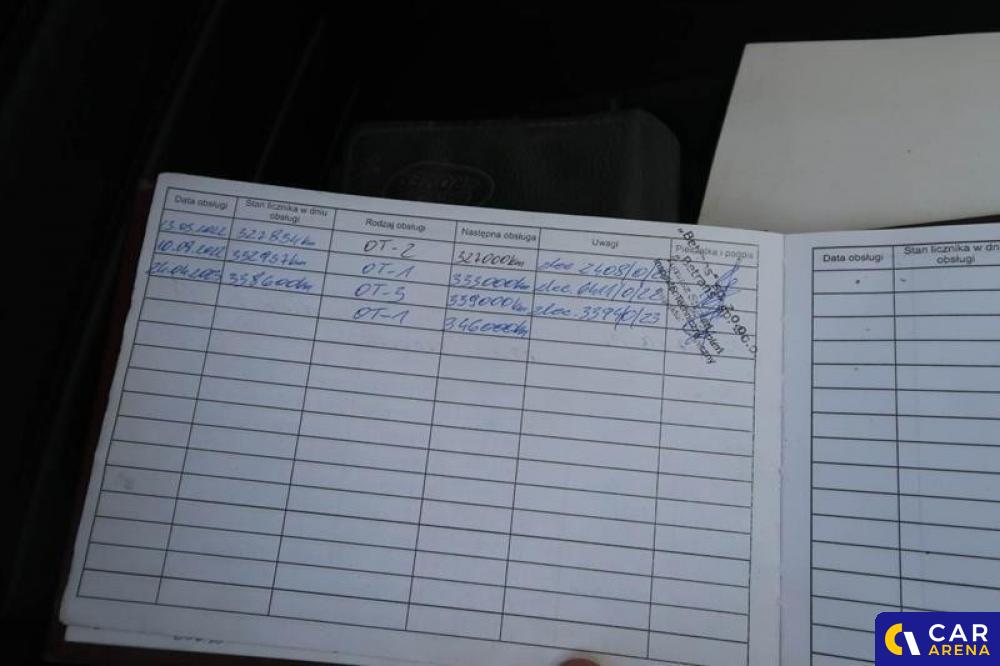 Data obsługi Stan licznika w dniu obsługi Rodzaj obsługi Następna obsługa Uwagi Pieczątka i podpis
13.05.2022 327854km OT-2 327000km zlec. 2408/0/22
10.09.2022 332957km OT-1 333000km zlec.
24.04.2023 338600km OT-3 339000km zlec. 3394/0/23
OT-1 346000km
"Be
Petrans
Data obsługi Stan licznika w dn
obsługi
CAR
ARENA